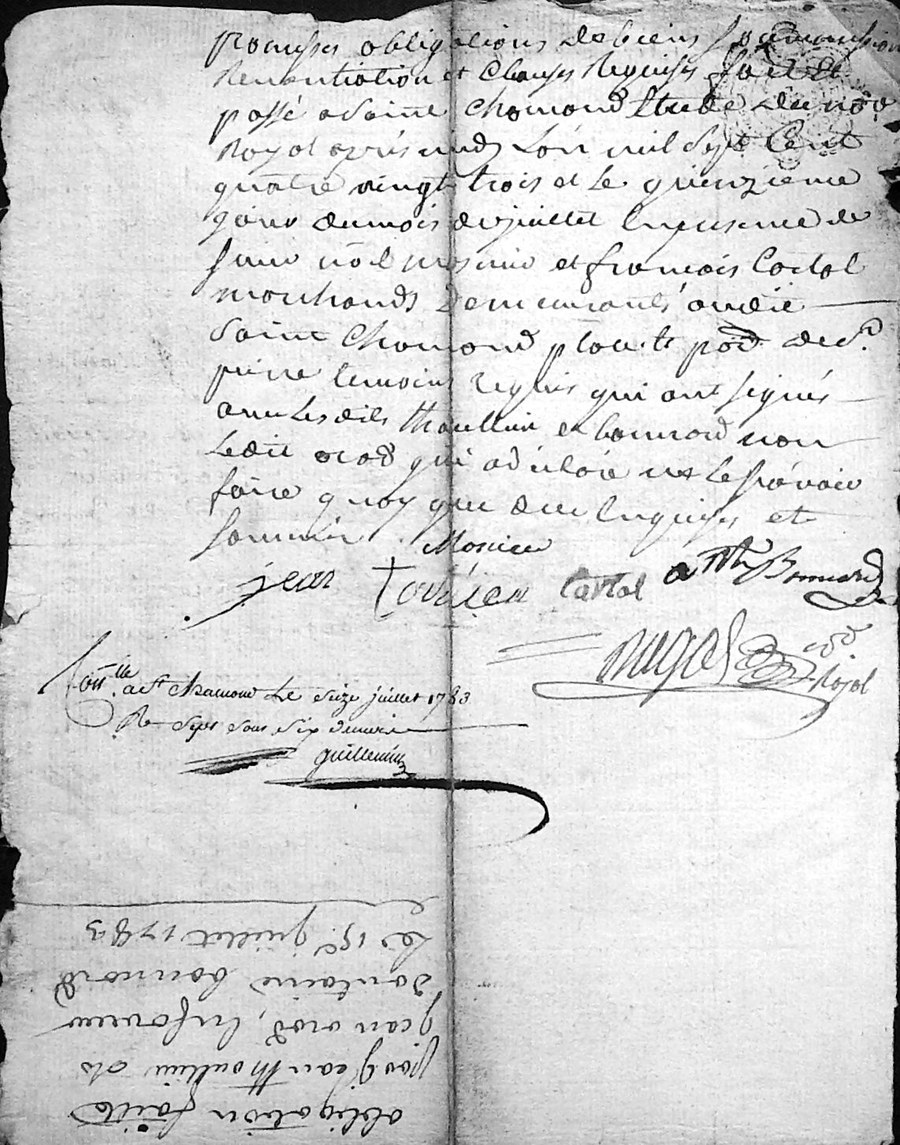 promesses obligations de biens soumission
Renontiation et Clauses Requises fait et
passé a Saint Chomond Etude du no.re
Royal après midy L'an mil sept Cent
quatre vingt trois et le quinzieme
jour du mois de juillet En presence de
sieur et françois Cartal
marchands Demeurants audit
Saint Chomond
pierre temoins Requis qui ont signés
avec Lesdits thoullieu et bonnard non
Ledit qui a déclaré ne le sçavoir
faire quoy que de ce Enquis et
sommé
jean Cartal Bonnard
Royal
Con.lle a St Chamond Le Seize juillet 1783
R. Sept sous Six deniers
guillemin
obligation faite
par jean thoullieu et
jean En faveur
D'antoine bonnard
Le 15.e juillet 1783